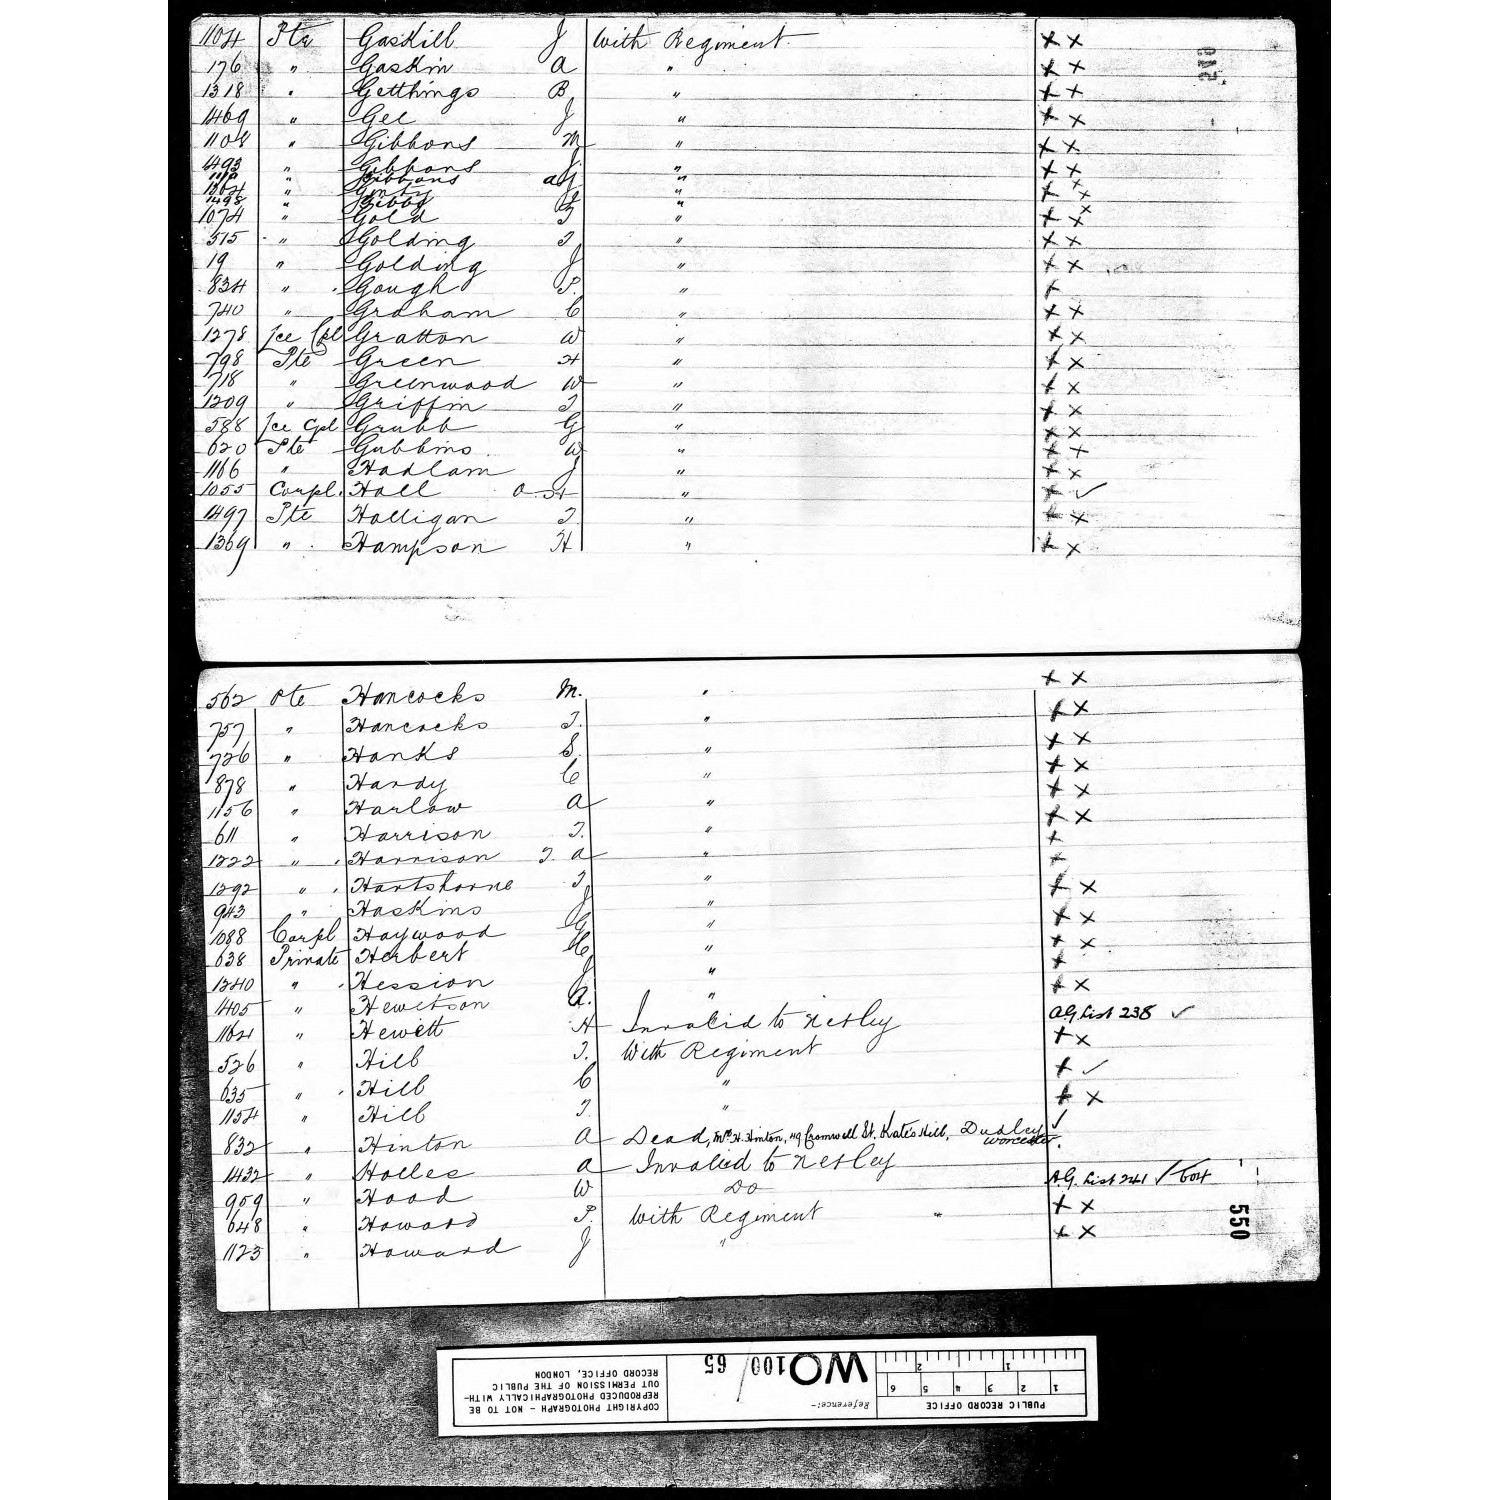 1104 Pte Gaskill J With Regiment. x x
176 " Gaskin A " x x
1318 " Getthings B " x x
1469 " Gee J " x x
1108 " Gibbons M " x x
493 " Gibbons J " x x
" Gibbons A J " x x
1364 " Ginty " x
1498 " Gibby " x
1074 " Gold T " x x
515 " Golding T " x x
19 " Golding J " x x
834 " Gough P. " x
740 " Graham C " x x
1278 Lce Cpl Gratton W " x x
798 Pte Green H " x x
718 " Greenwood W " x x
1209 " Griffin T " x x
588 Lce Cpl Grubb G " x x
620 Pte Gubbins W " x x
1166 " Hadlam J " x x
1055 Corpl. Hall O. H " x ✓
1497 Pte Halligan T. " x x
1369 " Hampson H " x x
562 Pte Hancocks M. " x x
757 " Hancocks T. " x x
726 " Hanks S. " x x
878 " Hardy C " x x
1156 " Harlow A " x x
611 " Harrison T. " x x
1222 " Harrison T. A " x
1292 " Hartshorne T " x
943 " Haskins J " x x
1088 Corpl Haywood G " x x
638 Private Herbert C " x x
1240 " Hession J " x
1405 " Hewitson A. " x x
1164 " Hewett H Invalid to Netley A.G. List 238 ✓
526 " Hill T. With Regiment x x
635 " Hill C " x ✓
1154 " Hill T. " x x
832 " Hinton A Dead, Mrs H. Hinton, 49 Cromwell St, Kate's Hill, Dudley ✓
Worcester.
1432 " Holles A Invalid to Netley
959 " Hood W Do A.G. List 241 ✓
648 " Howard P. With Regiment " x x
1123 " Howard J " x x
550
PUBLIC RECORD OFFICE
1 2 3 4 5 6
1 2
Reference:-
WO 100/65
COPYRIGHT PHOTOGRAPH - NOT TO BE
REPRODUCED PHOTOGRAPHICALLY WITH-
OUT PERMISSION OF THE PUBLIC
RECORD OFFICE, LONDON